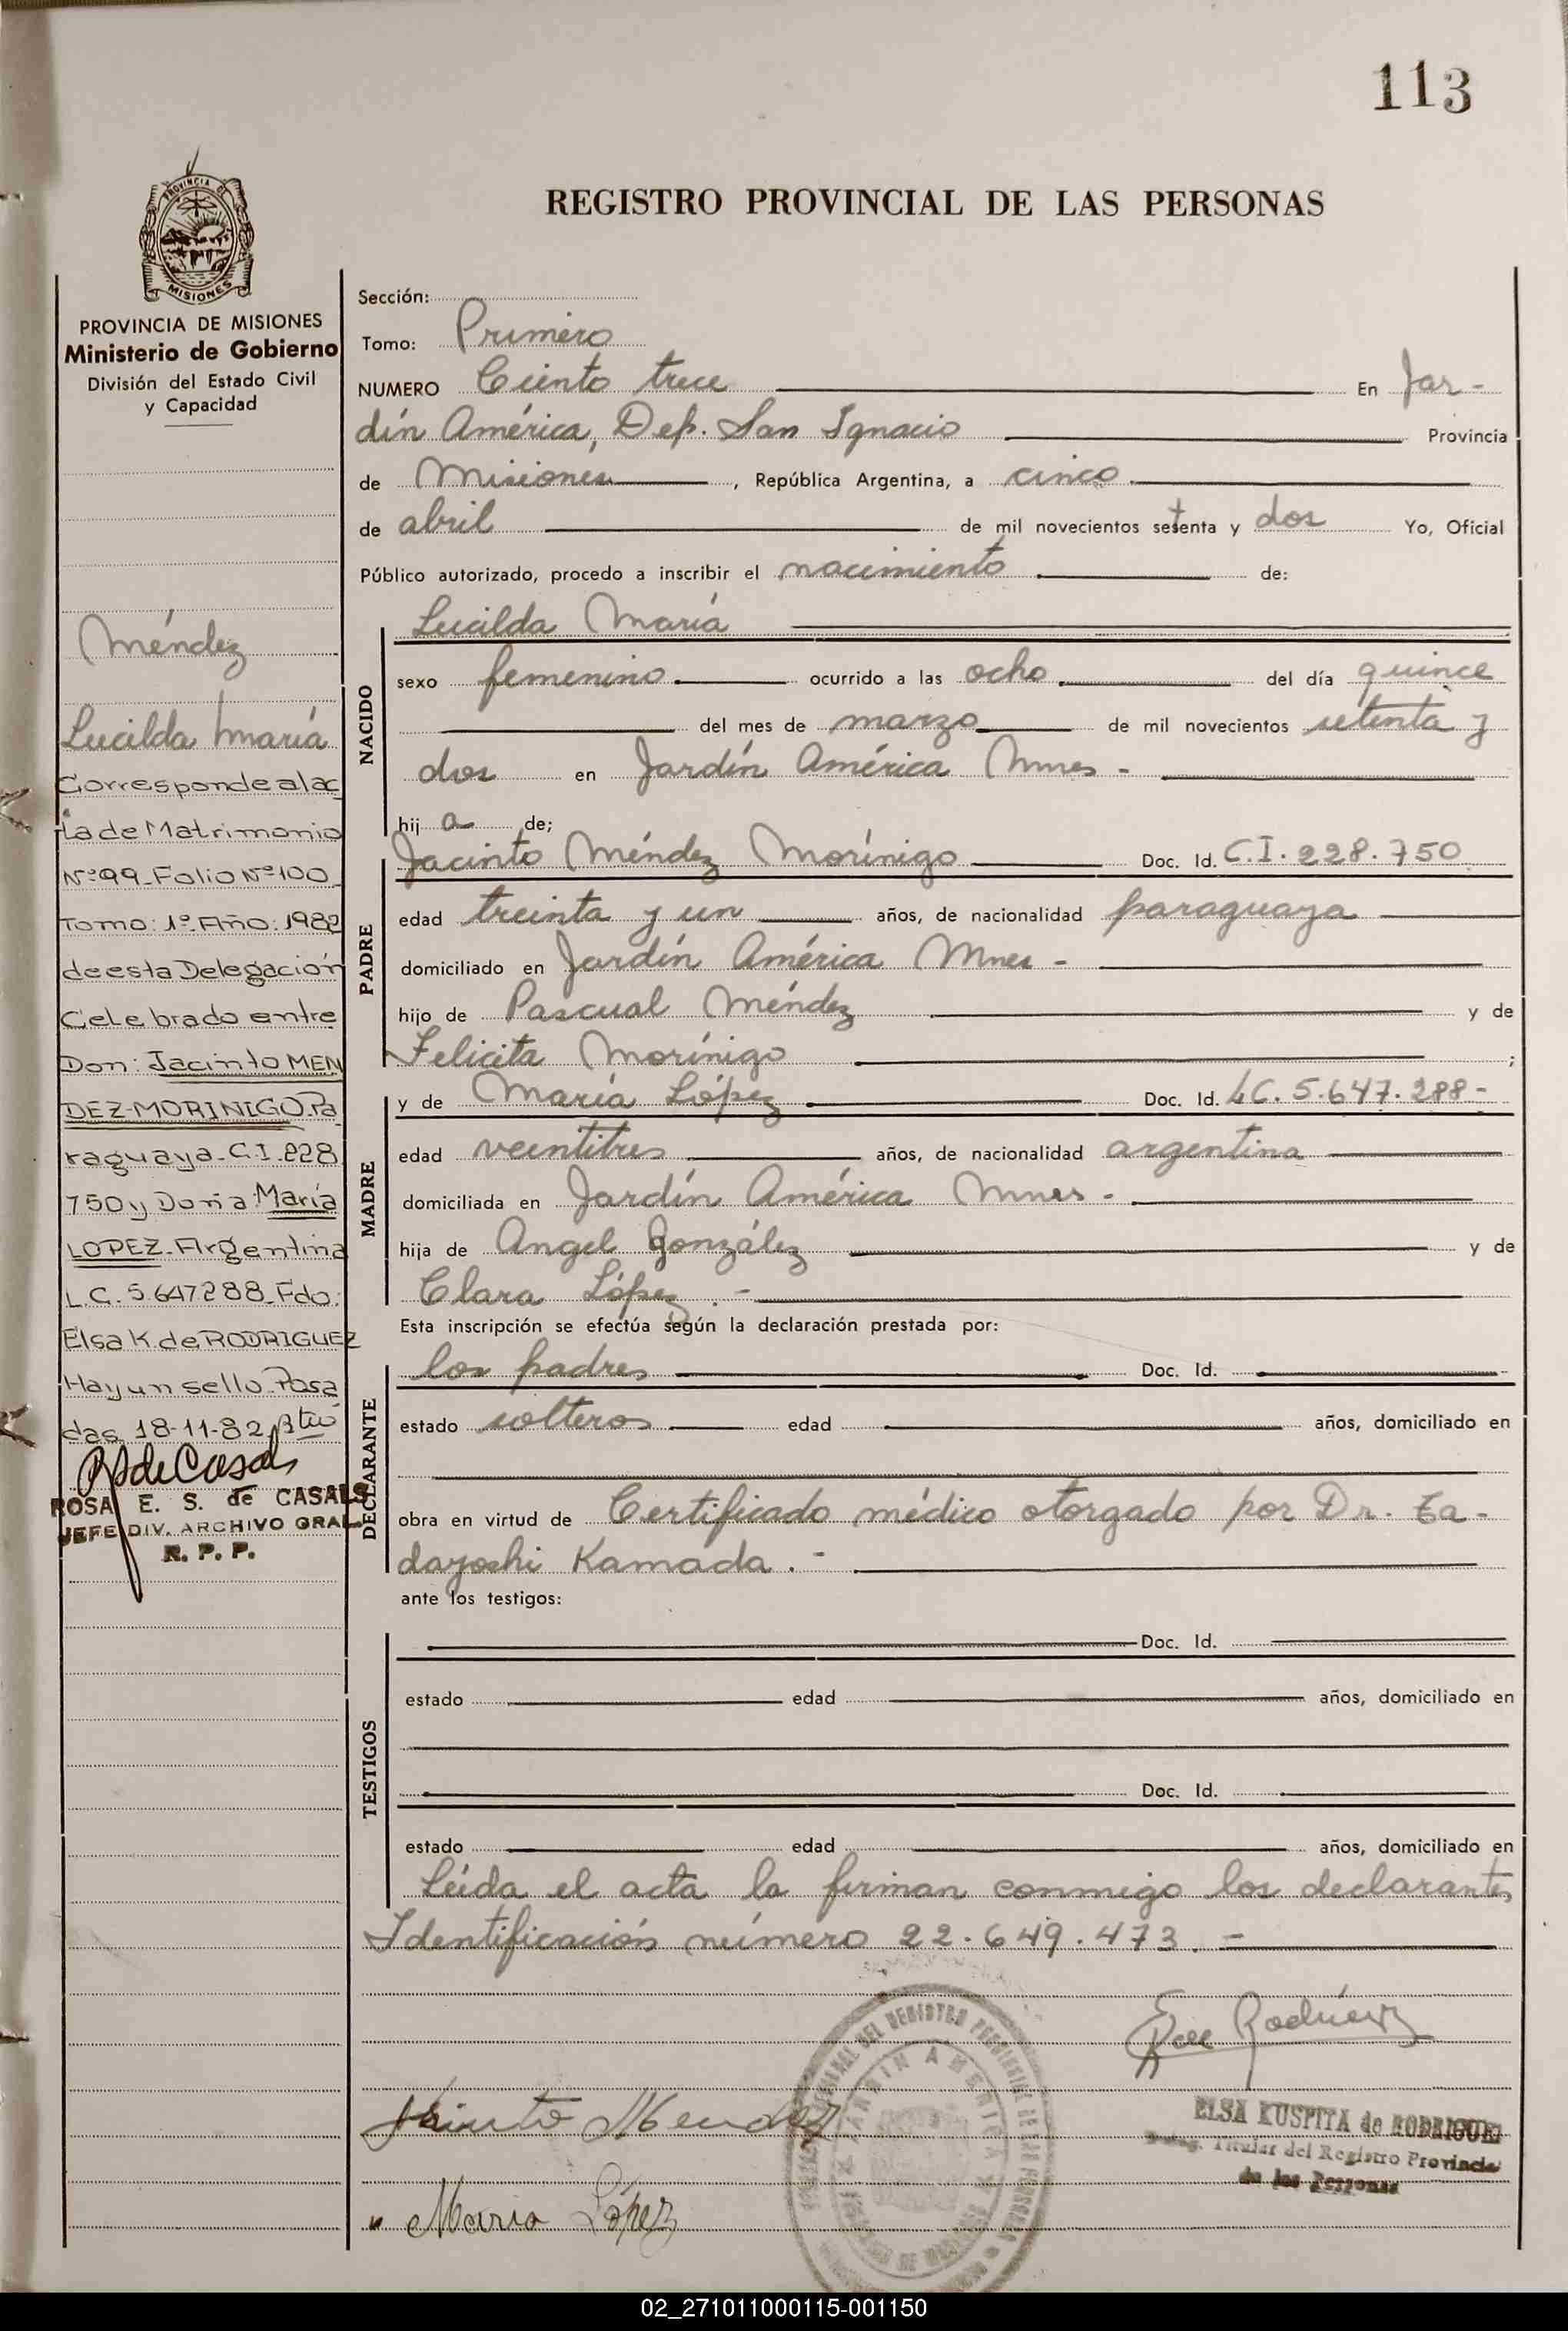 113
PROVINCIA DE
MISIONES
REGISTRO PROVINCIAL DE LAS PERSONAS
PROVINCIA DE MISIONES
Ministerio de Gobierno
División del Estado Civil
y Capacidad
Méndez
Lucilda María
Corresponde al ac
ta de Matrimonio
Nº 99-Folio Nº 100
Tomo: 1º-Año: 1982
de esta Delegación
Celebrado entre
Don: Jacinto MEN
DEZ-MORINIGO. Pa
raguaya-C.I.228
750 y Doña: María
LOPEZ-Argentina
L.C. 5.647288-Fdo:
Elsa K. de RODRIGUEZ
Hay un sello-Posa
das 18-11-82
ROSA E. S. de CASALS
JEFE DIV. ARCHIVO GRAL
R. P. P.
Sección:
Tomo: Primero
NUMERO Ciento trece En Jar-
dín América, Dep. San Ignacio Provincia
de Misiones, República Argentina, a cinco
de abril de mil novecientos setenta y dos Yo, Oficial
Público autorizado, procedo a inscribir el nacimiento de:
Lucilda María
NACIDO
sexo femenino ocurrido a las ocho del día quince
del mes de marzo de mil novecientos setenta y
dos en Jardín América Mnes-
hij a de;
Jacinto Méndez Morínigo Doc. Id. C.I. 228.750
PADRE
edad treinta y un años, de nacionalidad paraguaya
domiciliado en Jardín América Mnes-
hijo de Pascual Méndez y de
Felicita Morínigo ;
y de María López Doc. Id. LC. 5.647.288-
MADRE
edad veintitres años, de nacionalidad argentina
domiciliada en Jardín América Mnes-
hija de Angel González y de
Clara López.-
Esta inscripción se efectúa según la declaración prestada por:
los padres Doc. Id.
DECLARANTE
estado solteros edad años, domiciliado en
obra en virtud de Certificado médico otorgado por Dr. Ta-
dayoshi Kamada.-
ante los testigos:
TESTIGOS
Doc. Id.
estado edad años, domiciliado en
Doc. Id.
estado edad años, domiciliado en
Leída el acta la firman conmigo los declarantes
Identificación número 22.649.473.-
Jacinto Mendez
ELSA KUSPITA de RODRIGUEZ
Titular del Registro Provincial
de las Personas
María López
JARDIN AMERICA
02_271011000115-001150